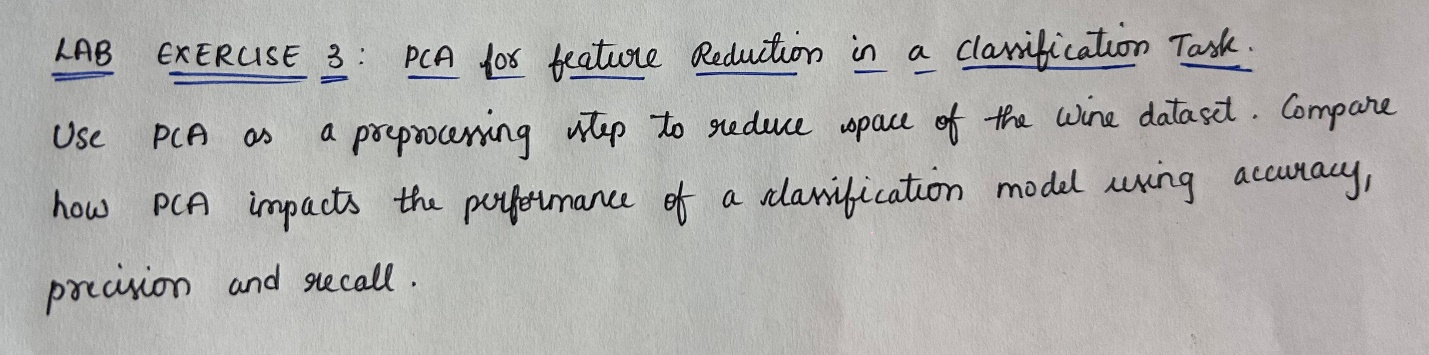 LAB EXERCISE 3: PCA for feature Reduction in a Classification Task.
Use PCA as a preprocessing step to reduce space of the Wine dataset. Compare
how PCA impacts the performance of a classification model using accuracy,
precision and recall.